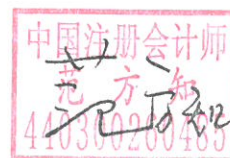 中国注册会计师
范方知
440300200485